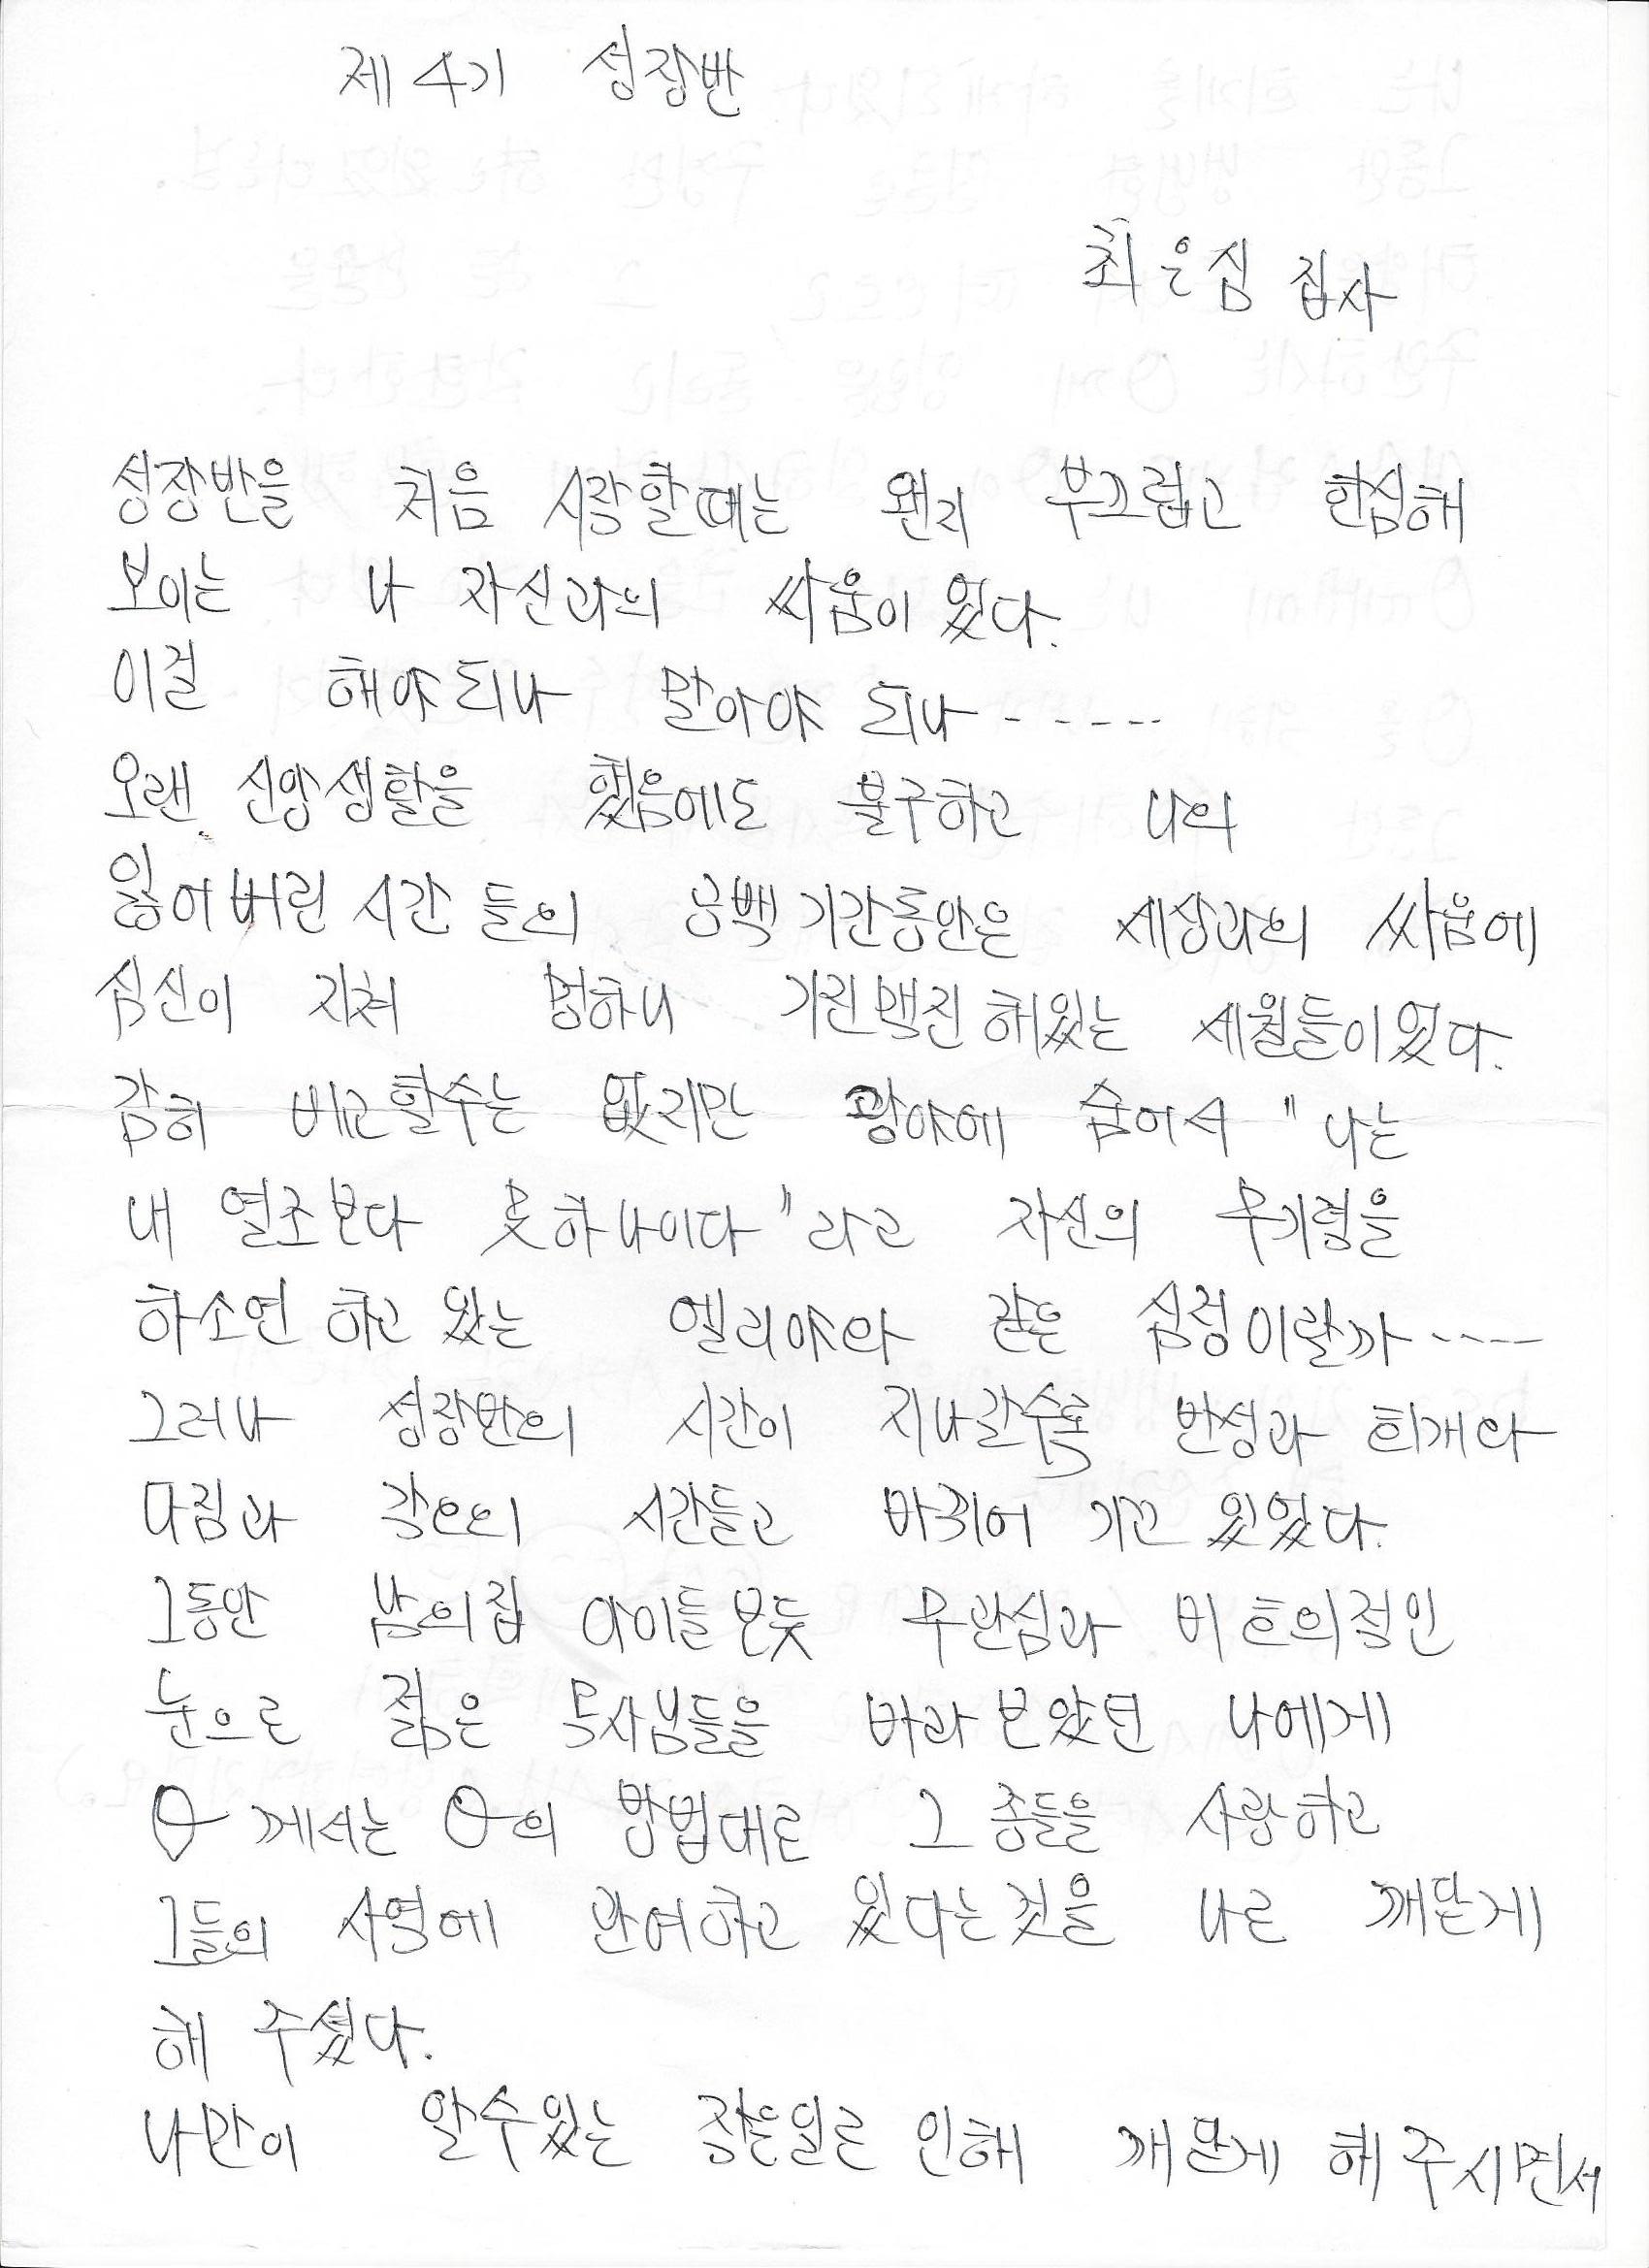 제 4기 성장반
최은심 집사
성장반을 처음 시작할때는 왠지 부끄럽고 한심해
보이는 나 자신과의 싸움이 있었다.
이걸 해야되나 말아야 되나 - - - - -
오랜 신앙생활을 했음에도 불구하고 나의
잃어버린 시간 들의 공백 기간동안은 세상과의 싸움에
심신이 지쳐 멍하니 기진맥진 해있는 세월들이었다.
감히 비교할수는 없지만 광야에 숨어서 "나는
내 열조보다 못하나이다" 라고 자신의 무기력을
하소연 하고 있는 엘리야와 같은 심정이랄까 - - - -
그러나 성장반의 시간이 지나갈수록 반성과 회개와
다짐과 각오의 시간들로 바뀌어 가고 있었다.
그동안 남의집 아이들 보듯 무관심과 비호의적인
눈으로 젊은 목사님들을 바라 보았던 나에게
께서는 의 방법대로 그 종들을 사랑하고
그들의 사역에 관여하고 있다는것을 나로 깨닫게
해 주셨다.
나만이 알수있는 작은일로 인해 깨닫게 해 주시면서